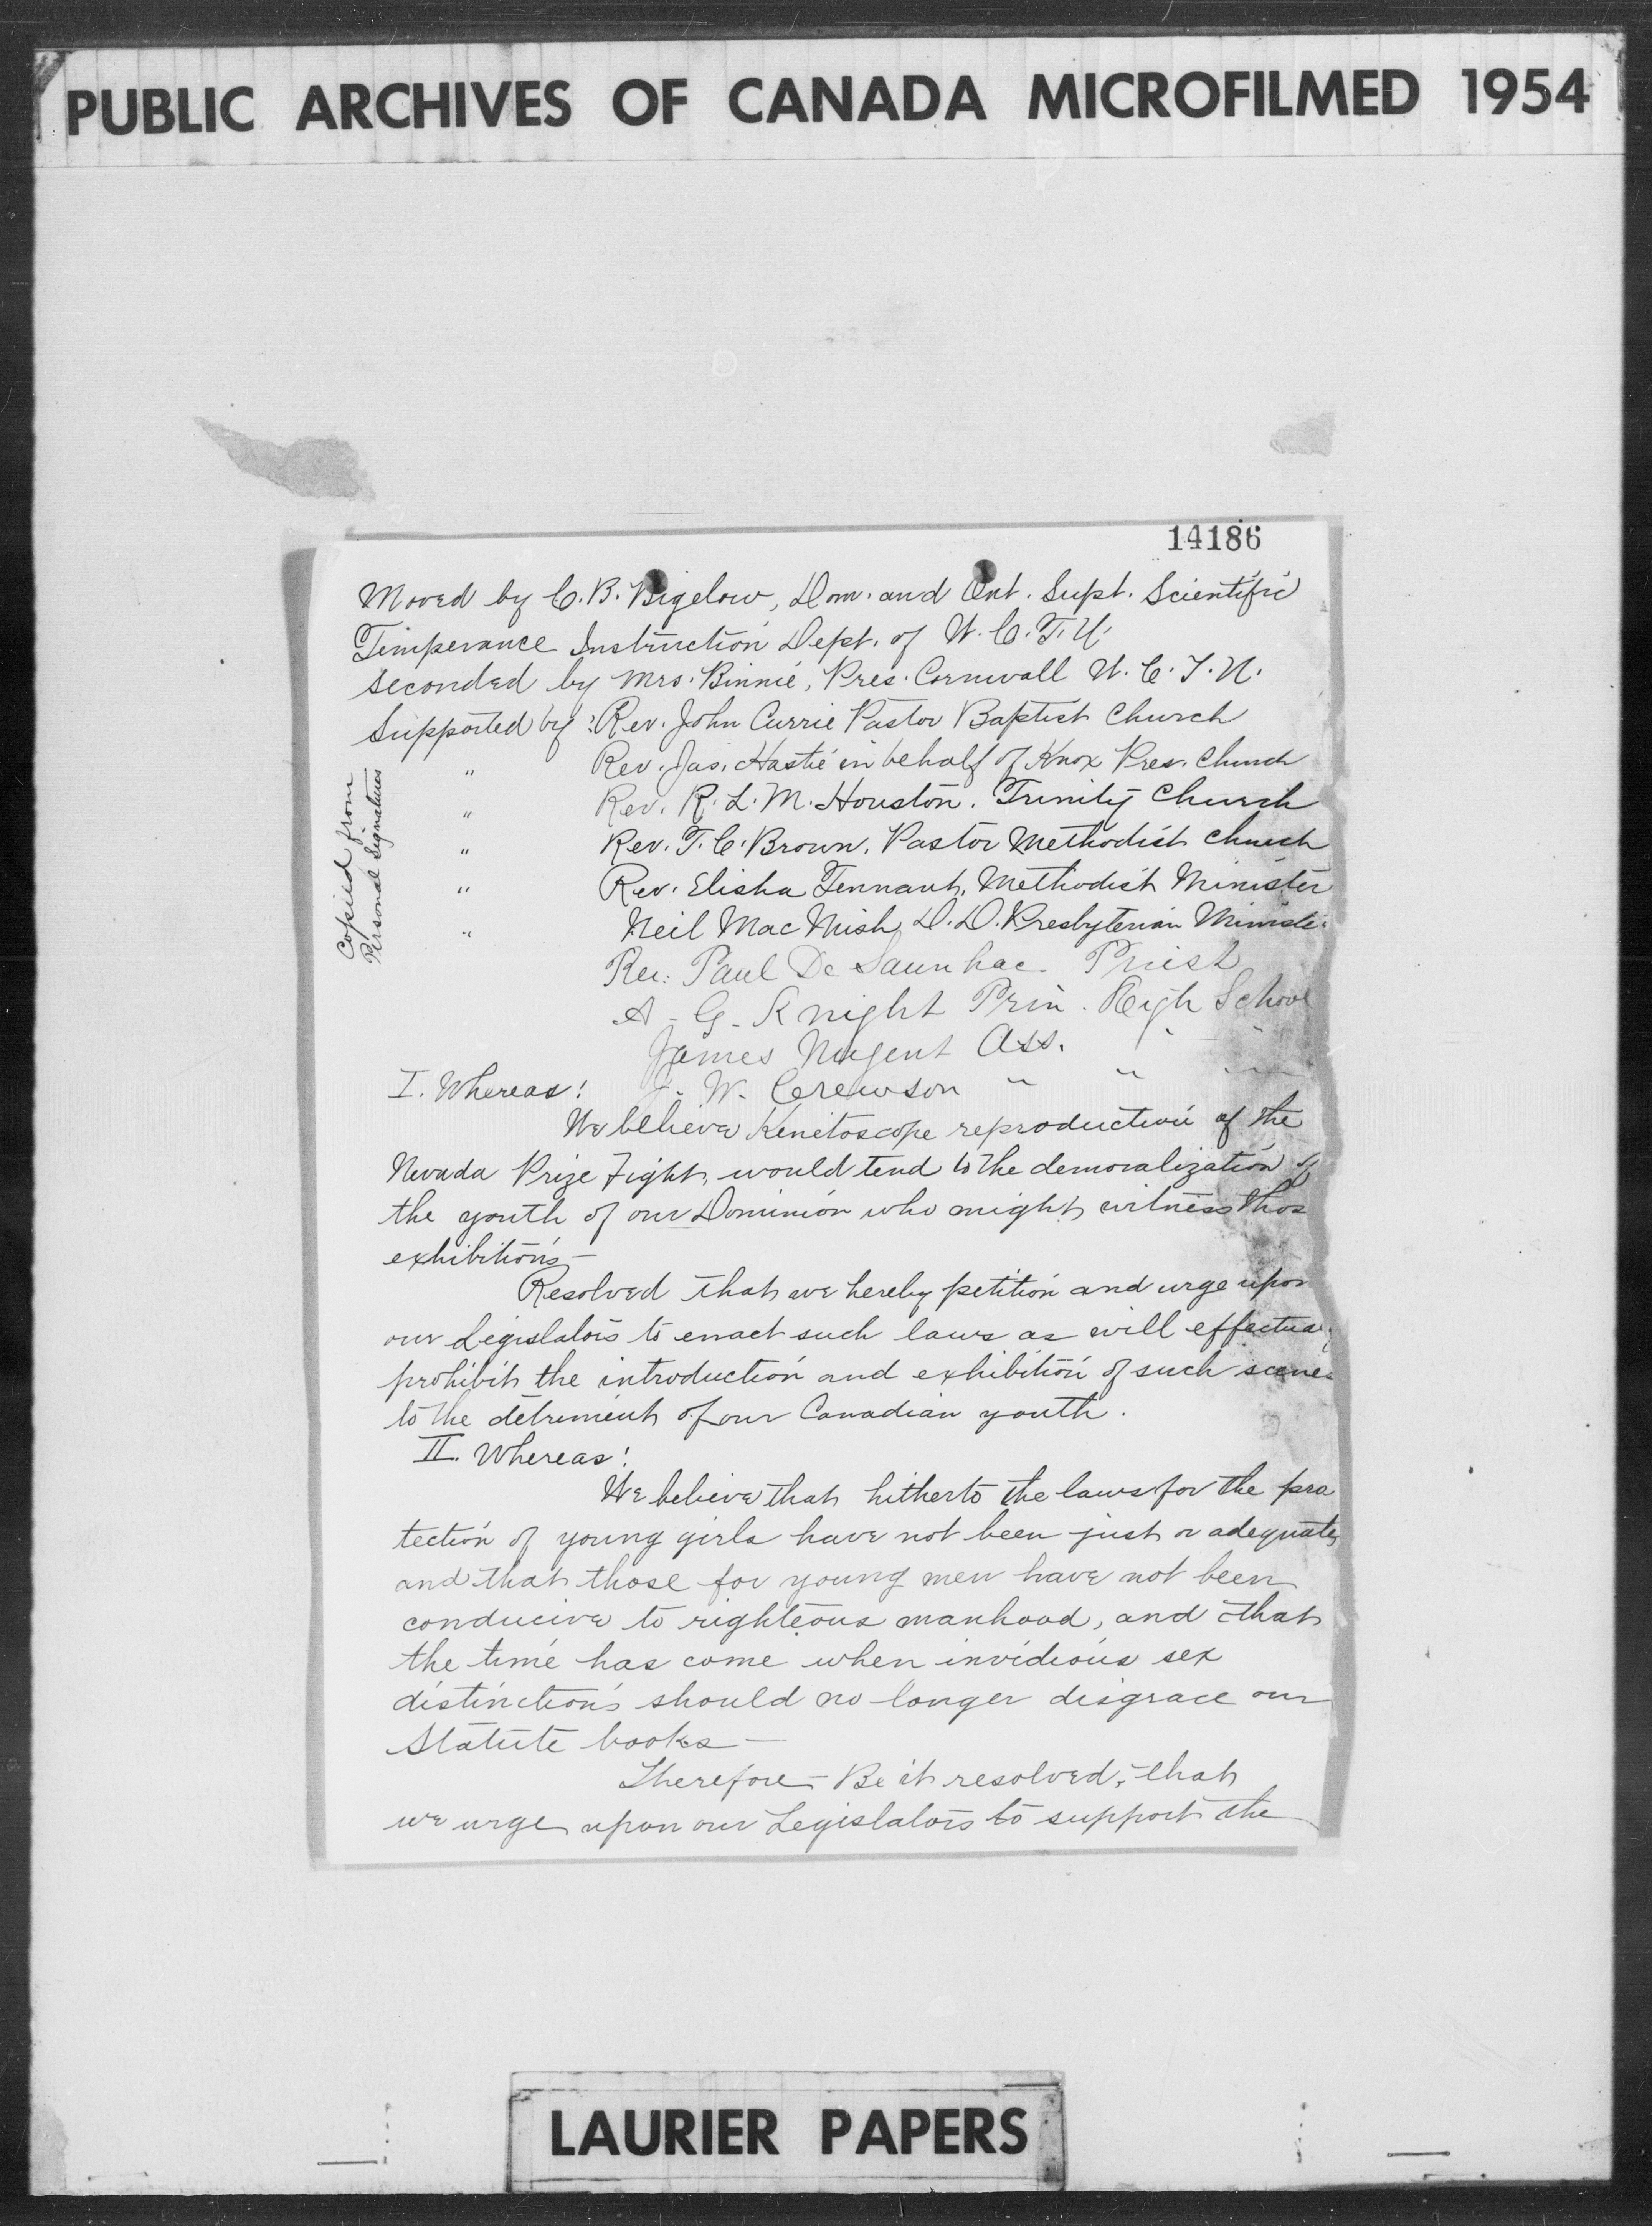 PUBLIC ARCHIVES OF CANADA MICROFILMED 1954
14186
Moved by C. B. Bigelow, Dom. and Ont. Supt. Scientific
Temperance Instruction Dept. of W. C. T. U.
Seconded by Mrs. Binnie, Pres. Cornwall W. C. T. U.
Supported by: Rev. John Currie Pastor Baptist Church
" Rev. Jas. Hastie in behalf of Knox Pres. Church
" Rev. R. L. M. Houston. Trinity Church
" Rev. T. C. Brown, Pastor Methodist Church
" Rev. Elisha Tennant, Methodist Minister
" Neil MacNish, D. D. Presbyterian Ministe
Copied from
Personal Signatures
Rev. Paul De Saunhac Priest
A. G. Knight Prin. High School
James Nugent Ass. " "
I. Whereas! J. W. Crewson " " "
We believe Kenitoscope reproduction of the
Nevada Prize Fight, would tend to the demoralization of
the youth of our Dominion who might witness thos
exhibitions —
Resolved that we hereby petition and urge upon
our Legislators to enact such laws as will effectua
prohibit the introduction and exhibition of such scenes
to the detriment of our Canadian youth.
II. Whereas!
We believe that hitherto the laws for the pro
tection of young girls have not been just or adequate,
and that those for young men have not been
conducive to righteous manhood, and that
the time has come when invidious sex
distinctions should no longer disgrace our
Statute books —
Therefore — Be it resolved, that
we urge upon our Legislators to support the
LAURIER PAPERS